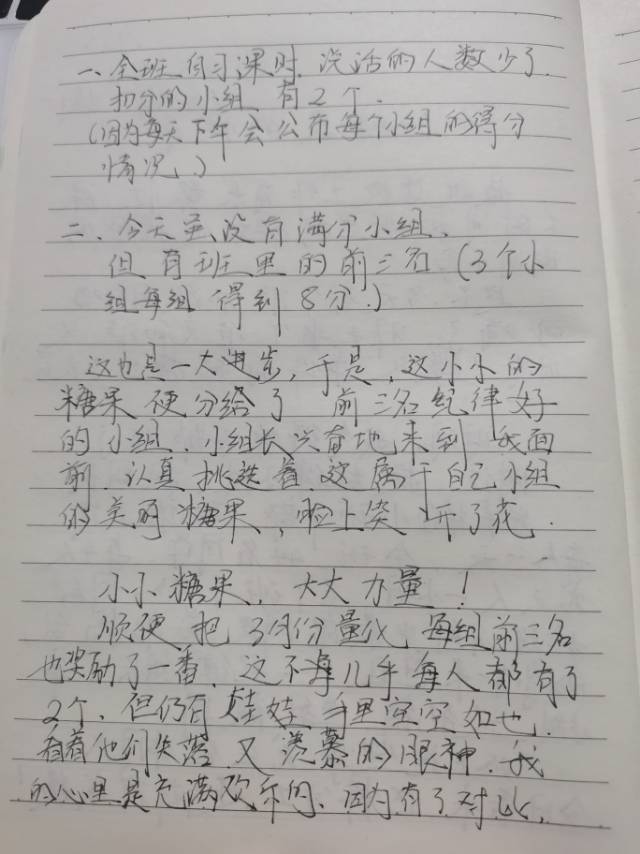 一、全班自习课时，说话的人数少了.
扣分的小组，有2个.
(因为每天下午会公布每个小组的得分
情况.)
二、今天虽没有满分小组.
但有班里的前三名(3个小
组每组得到8分.)
这也是一大进步,于是,这小小的
糖果便分给了 前三名纪律好
的小组.小组长兴奋地来到我面
前.认真挑选着这属于自己小组
的美丽糖果,脸上笑开了花.
小小糖果,大大力量!
顺便把3月份量化,每组前三名
也奖励了一番.这不,几乎每人都有了
2个.但仍有娃娃手里空空如也.
看着他们失落又羡慕的眼神.我
的心里是充满欢乐的、因为有了对比,